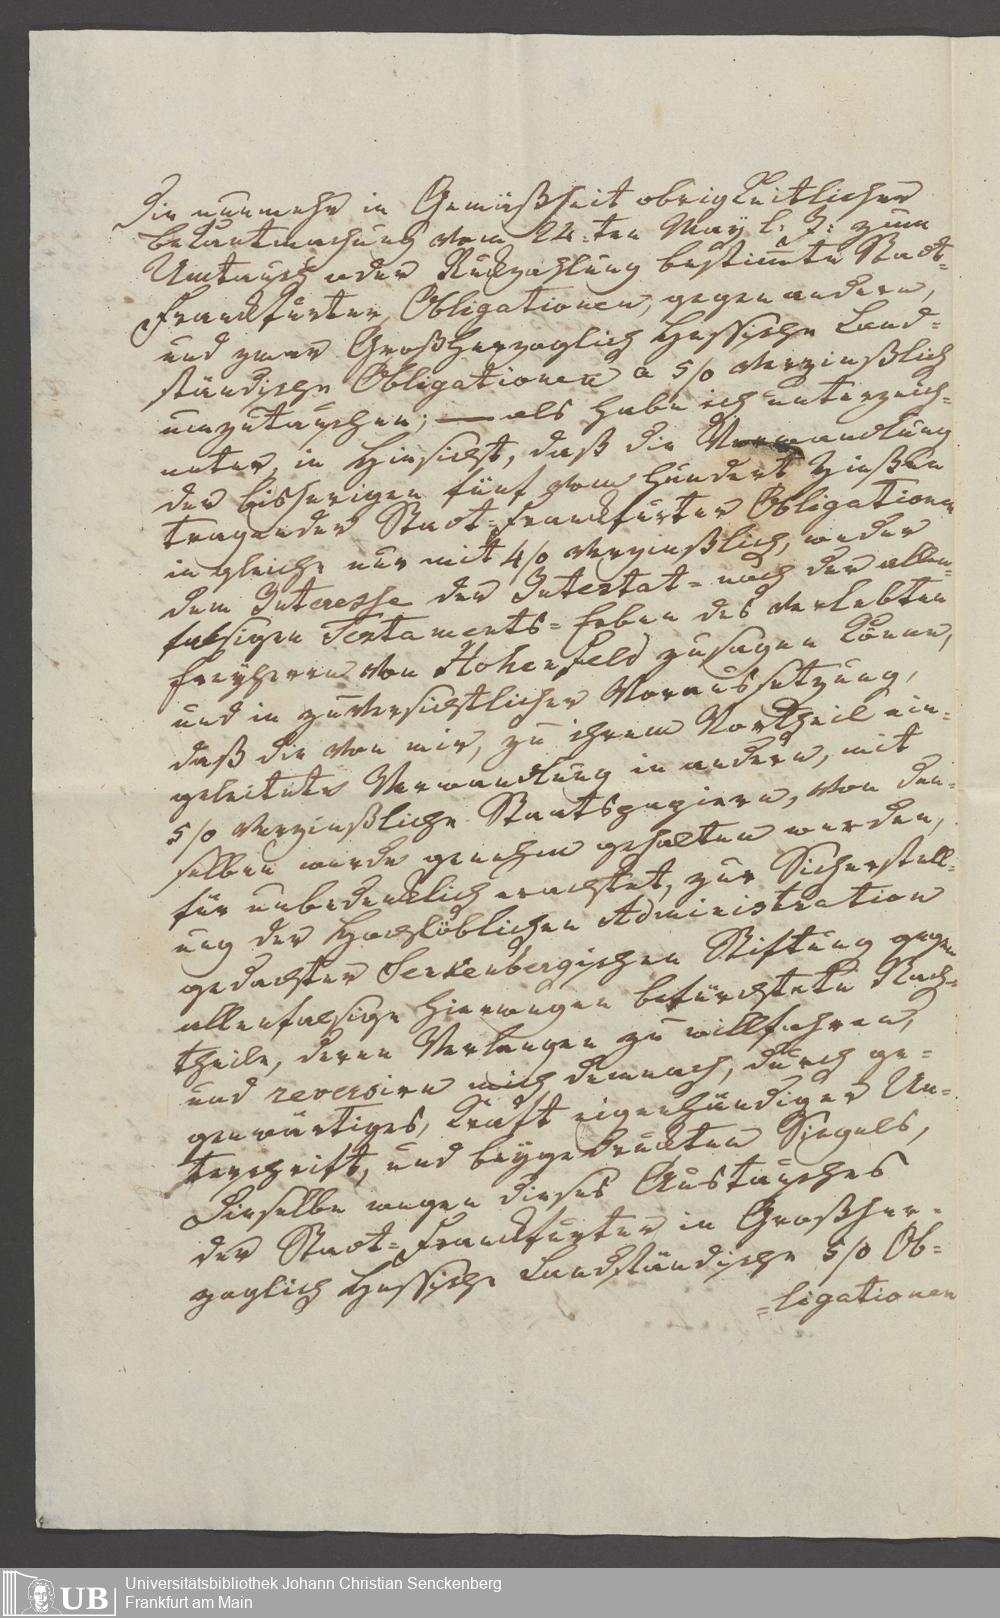 Die nunmehr in Gemäßheit obrigkeitlicher
bekantmachung vom 24.ten May l: J: zum
Umtausch oder Rückzahlung bestimte Stadt=
Franckfurter Obligationen, gegen andern,
und zwar Großherzoglich Hessische Land=
ständische Obligationen a 5/0 verzinßlich
umzutauschen; — als habe ich unterzeich=
neter, in Hinsicht, daß die Verwandlung
der bisherigen fünf vom hundert Zinßen
tragender Stadt=Franckfurter Obligationen
in gleiche nur mit 4/0 verzinßlich, weder
dem Interesse der Intestat= noch der allen=
falsigen Testaments=Erben des verlebten
Freyherrn von Hohenfeld zusagen könne,
und in zuversichtlicher Voraussetzung,
daß die von mir, zu ihrem Vortheil ein=
geleitete Verwandlung in andern, mit
5/0 verzinßliche Staatspapiern, von den=
selben werde genehm gehalten werden,
für unbedencklich erachtet, zur Sicherstell=
ung der Hochlöblichen Administration
gedachter Senkenbergischen Stiftung gegen
allenfalsige hierwegen befürchtete Nach=
theile, deren Verlangen zu willfahren,
und reversire mich demnach, durch ge=
genwärtiges, Kraft eigenhändiger Un=
terschrift, und beygedruckten Siegels,
Dieselbe wegen dieses Austausches
der Stadt=Franckfurter in Großher=
zoglich Hessische Landständische 5/0 Ob=
=ligationen
UB
Universitätsbibliothek Johann Christian Senckenberg
Frankfurt am Main